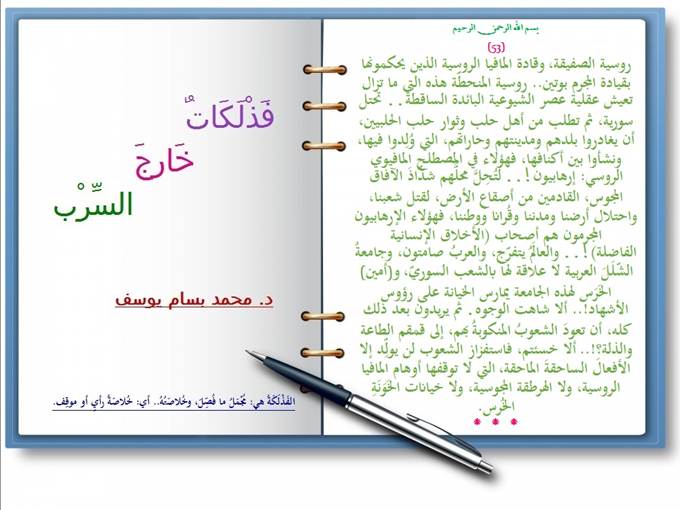 بسم الله الرحمن الرحيم
(53)
روسية الصفيقة، وقادة المافيا الروسية الذين يحكمونها
بقيادة المجرم بوتين.. روسية المنحطّة هذه التي ما تزال
تعيش عقلية عصر الشيوعية البائدة الساقطة.. تحتل
سورية، ثم تطلب من أهل حلب وثوار حلب الحلبيين،
أن يغادروا بلدهم ومدينتهم وحاراتهم، التي وُلدوا فيها،
ونشأوا بين أكنافها، فهؤلاء في المصطلح المافيوي
الروسي: إرهابيون!.. لتُحِلَّ محلَّهم شذّاذَ الآفاق
المجوس، القادمين من أصقاع الأرض، لقتل شعبنا،
واحتلال أرضنا ومدننا وقُرانا ووطننا، فهؤلاء الإرهابيون
المجرمون هم أصحاب (الأخلاق الإنسانية
الفاضلة)!.. والعالَمُ يتفرّج، والعربُ صامتون، وجامعةُ
الشّلَلَ العربية لا علاقة لها بالشعب السوريّ، و(أمين)
الخَرَس لهذه الجامعة يمارس الخيانة على رؤوس
الأشهاد!.. ألا شاهت الوجوه. ثم يريدون بعد ذلك
كله، أن تعودَ الشعوبُ المنكوبةُ بهم، إلى قمقم الطاعة
والذلة؟!.. ألا خسئتم، فاستفزاز الشعوب لن يولّد إلا
الأفعالَ الساحقةَ الماحقة، التي لا توقفها أوهام المافيا
الروسية، ولا الهرطقة المجوسية، ولا خيانات الخَوَنَةِ
الخُرس.
* * *
فَذْلَكَاتٌ
خَارِجَ
السِّرْب
د. محمد بسام يوسف
الفَذْلَكَةُ هي: مُجْمَلُ ما فُصِّلَ، وخُلاصَتُهُ.. أي: خُلاصَةُ رأيٍ أو موقِف.